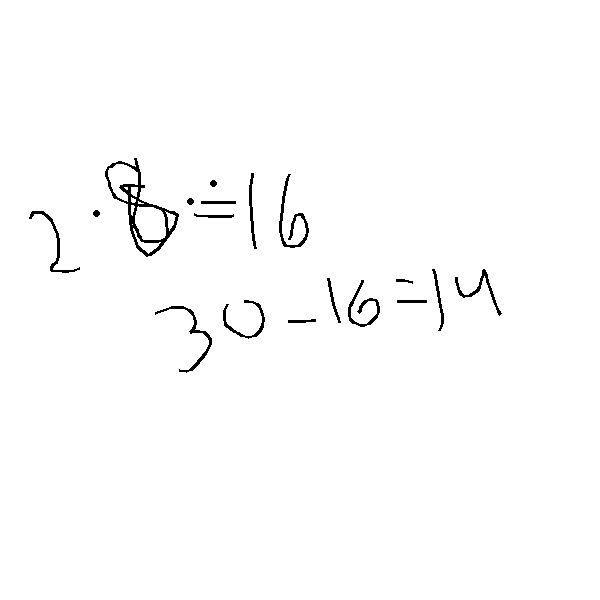 2 · 8 = 16
30 - 16 = 14